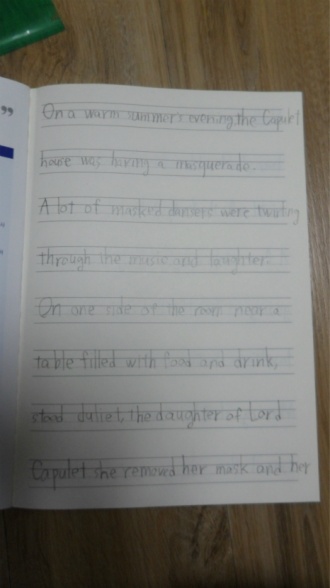 ”
On a warm summers evening the Capulet
house was having a masquerade.
A lot of masked dancers were twirling
through the music and laughter.
On one side of the room near a
table filled with food and drink,
stood Juliet, the daughter of Lord
Capulet she removed her mask and her